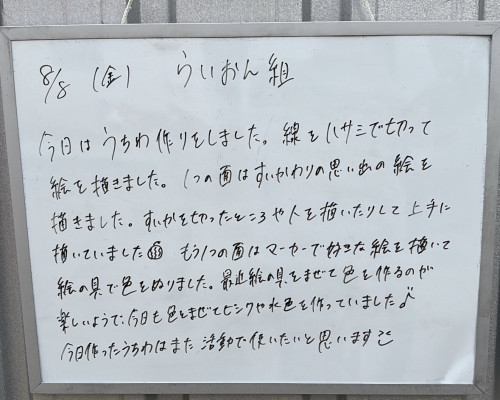 8/8 (金) らいおん組
今日はうちわ作りをしました。線をハサミで切って
絵を描きました。1つの面はすいかわりの思い出の絵を
描きました。すいかを切ったところや人を描いたりして上手に
描いていました もう1つの面はマーカーで好きな絵を描いて
絵の具で色をぬりました。最近絵の具をまぜて色を作るのが
楽しいようで、今日も色をまぜてピンクや水色を作っていました♪
今日作ったうちわはまた活動で使いたいと思います